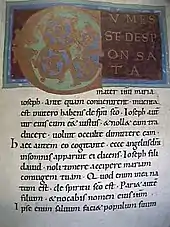 C
VM ES
SE DES
PON
SATA
mater ihu maria
ioseph. Ante quam conuenirent inuenta
est in utero habens de spu sco. Ioseph aut
uir eius cum eet iustus & nollet eam tra
ducere. uoluit occulte dimittere eam.
Haec autem eo cogitante. ecce angelus dni
in somnis apparuit ei dicens. Ioseph fili
dauid. noli timere accipere mariam
coniugem tuam. Quod enim in ea na
tum est. de spu sco est. Pariet aute
filium. & uocabis nomen eius ihm
Ipse enim saluum faciet populum suum